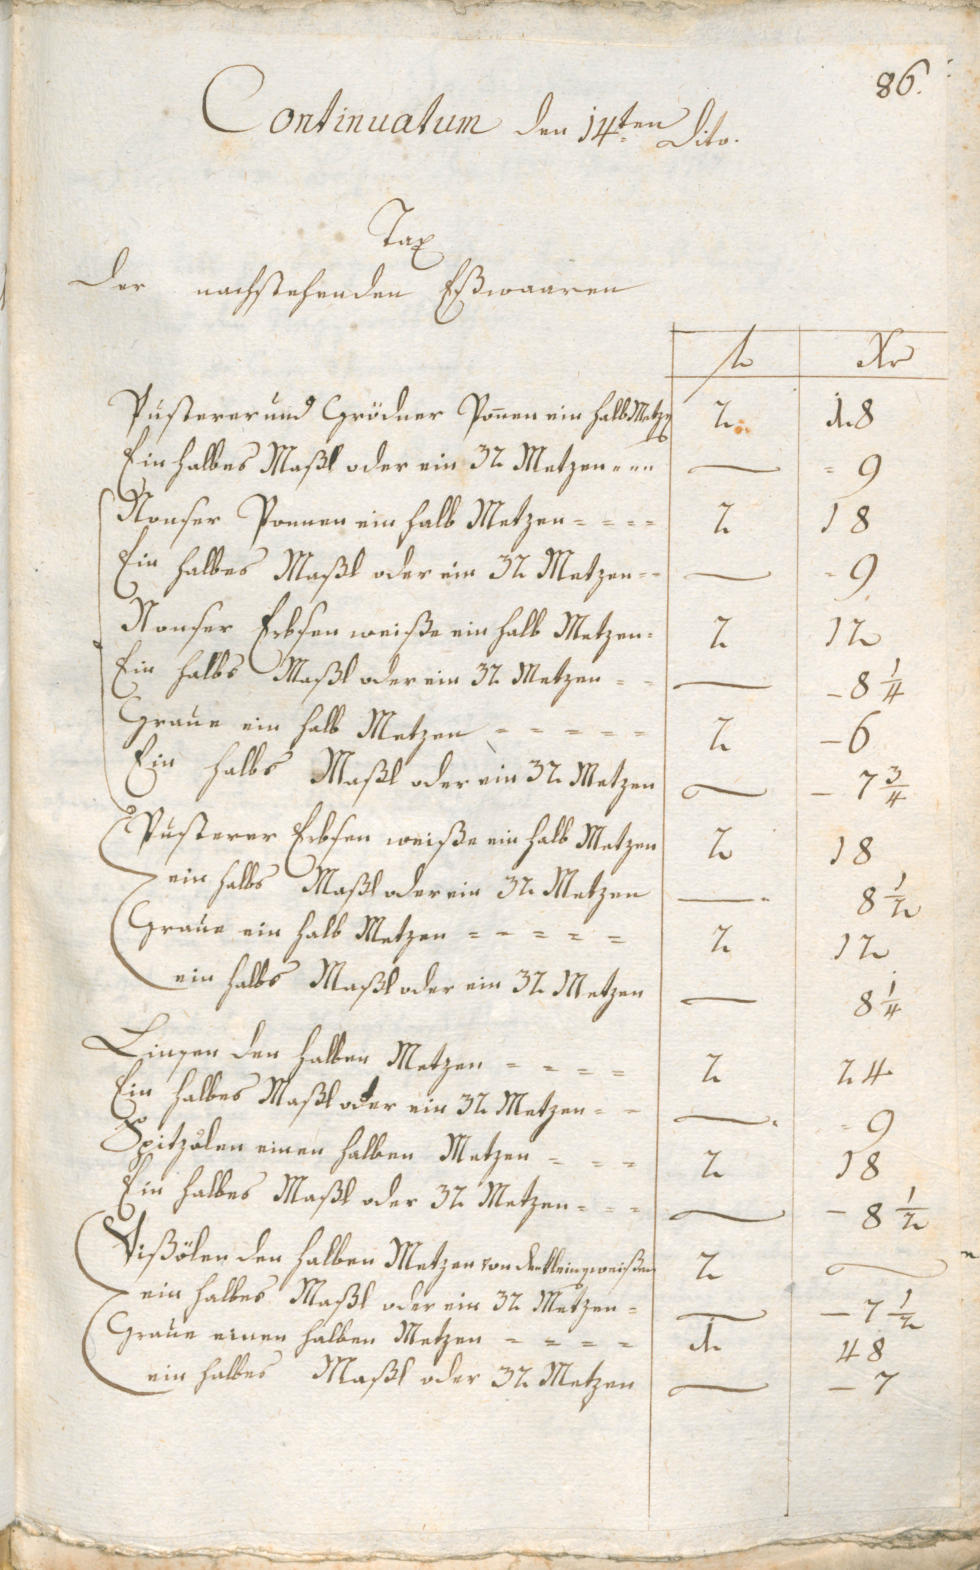 86.
Continuatum den 14ten Dito.
Tax
Der nachstehenden Eßwaaren
fl Xr
Pusterer und Grödner Ponen ein halb Metzen 2 18
Ein halbes Maßl oder ein 32 Metzen = = = — = 9
Nonser Ponnen ein halb Metzen = = = = 2 18
Ein halbes Maßl oder ein 32 Metzen = = — = 9
Nonser Erbsen weiße ein halb Metzen = 2 12
Ein halbs Maßl oder ein 32 Metzen = = — – 8 1/4
Graue ein halb Metzen = = = = = 2 – 6
Ein halbs Maßl oder ein 32 Metzen — – 7 3/4
Pusterer Erbsen weiße ein halb Metzen 2 18
ein halbs Maßl oder ein 32 Metzen — 8 1/2
Graue ein halb Metzen = = = = = 2 12
ein halbs Maßl oder ein 32 Metzen — 8 1/4
Linsen den halben Metzen = = = = 2 24
Ein halbes Maßl oder ein 32 Metzen = = — = 9
Spitzölen einen halben Metzen = = = 2 18
Ein halbes Maßl oder 32 Metzen = = = — – 8 1/2
Vißölen den halben Metzen von den klein weißen 2 —
ein halbes Maßl oder ein 32 Metzen = — – 7 1/2
Graue einen halben Metzen = = = = 1 48
ein halbes Maßl oder 32 Metzen — – 7